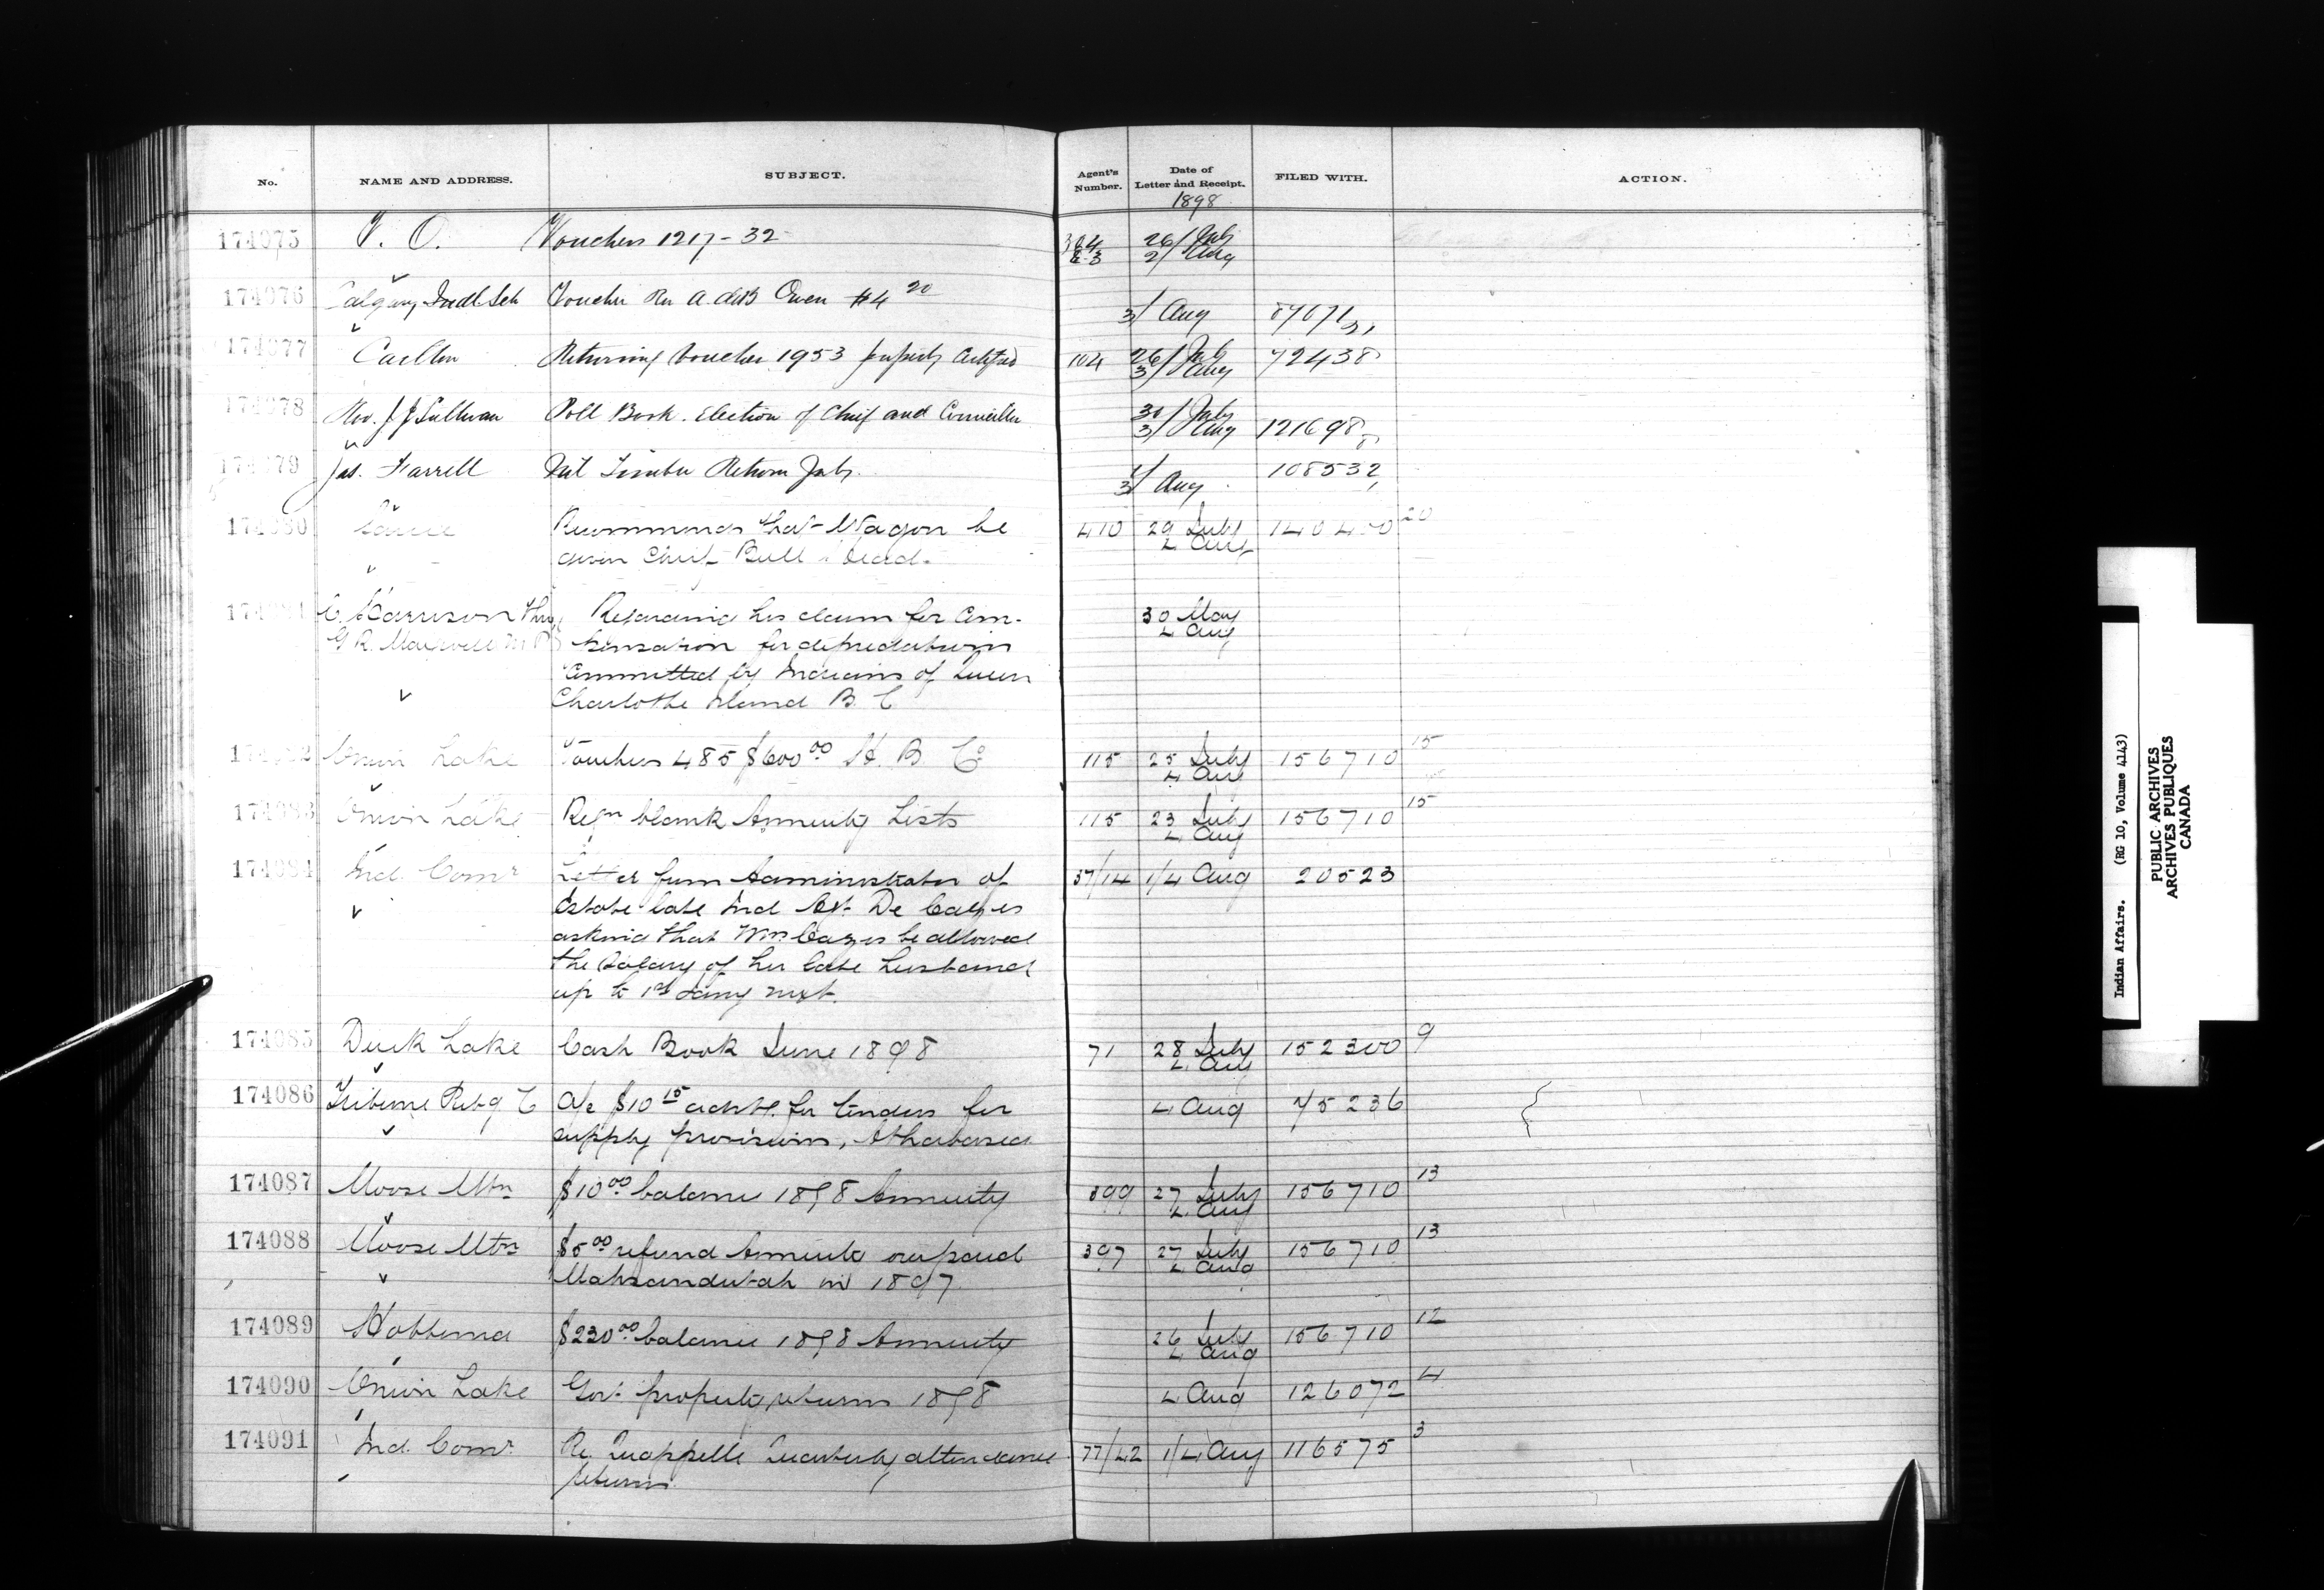 No. NAME AND ADDRESS. SUBJECT. Agent's Number. Date of Letter and Receipt. FILED WITH. ACTION.
1898
174075 V. O. Vouchers 1217-32 26/July
2/Aug
174076 Calgary Indl Sch Voucher Rev A. deB Owen $4 20
3/ Aug 87671
174077 Carlton Returning Voucher 1953 properly Certified 104 26/July 72438
3/Aug
174078 Rev. J J Sullivan Poll Book. Election of Chief and Councillor 30/July
3/Aug 121698
174079 Jas. Farrell Nil Timber Return July. 1/
3/ Aug 108532
174080 Sarcee Recommends that Wagon be 410 29 July 140400 20
given Chief Bull's Head. 4 Aug
174081 C. Harrison thro Regarding his claim for Com- 30 May
G R. Maxwell M P pensation for depredations 4 Aug
Committed by Indians of Queen
Charlotte Island B. C
174082 Onion Lake Vouchers 485 $600 00 H. B. Co 115 25 July 156710 15
4 Aug
174083 Onion Lake Reqn blank Annuity Lists 115 23 July 156710 15
4 Aug
174084 Ind. Comr Letter from Administrator of 37/14 1/4 Aug 20523
Estate late Ind Agt. De Cazes
asking that Mrs Cazes be allowed
the Salary of her late husband
up to 1st Jany next.
174085 Duck Lake Cash Book June 1898 71 28 July 152300 9
4 Aug
174086 Tribune Pubg C a/c $10 15 advtt. for tenders for 4 Aug 75236
supply provisions, Athabasca
174087 Moose Mtn $10 00 balance 1898 Annuity 399 27 July 156710 13
4 Aug
174088 Moose Mtn $5 00 refund Annuity overpaid 397 27 July 156710 13
in 1897 4 Aug
174089 Hobbema $230 00 balance 1898 Annuity 26 July 156710 12
4 Aug
174090 Onion Lake Govt property returns 1898 4 Aug 126072 4
174091 Ind. Comr. Re. Quappelle Quarterly attendance 77/42 1/4 Aug 116575 3
returns.
Indian Affairs. (RG 10, Volume 4143)
PUBLIC ARCHIVES
ARCHIVES PUBLIQUES
CANADA